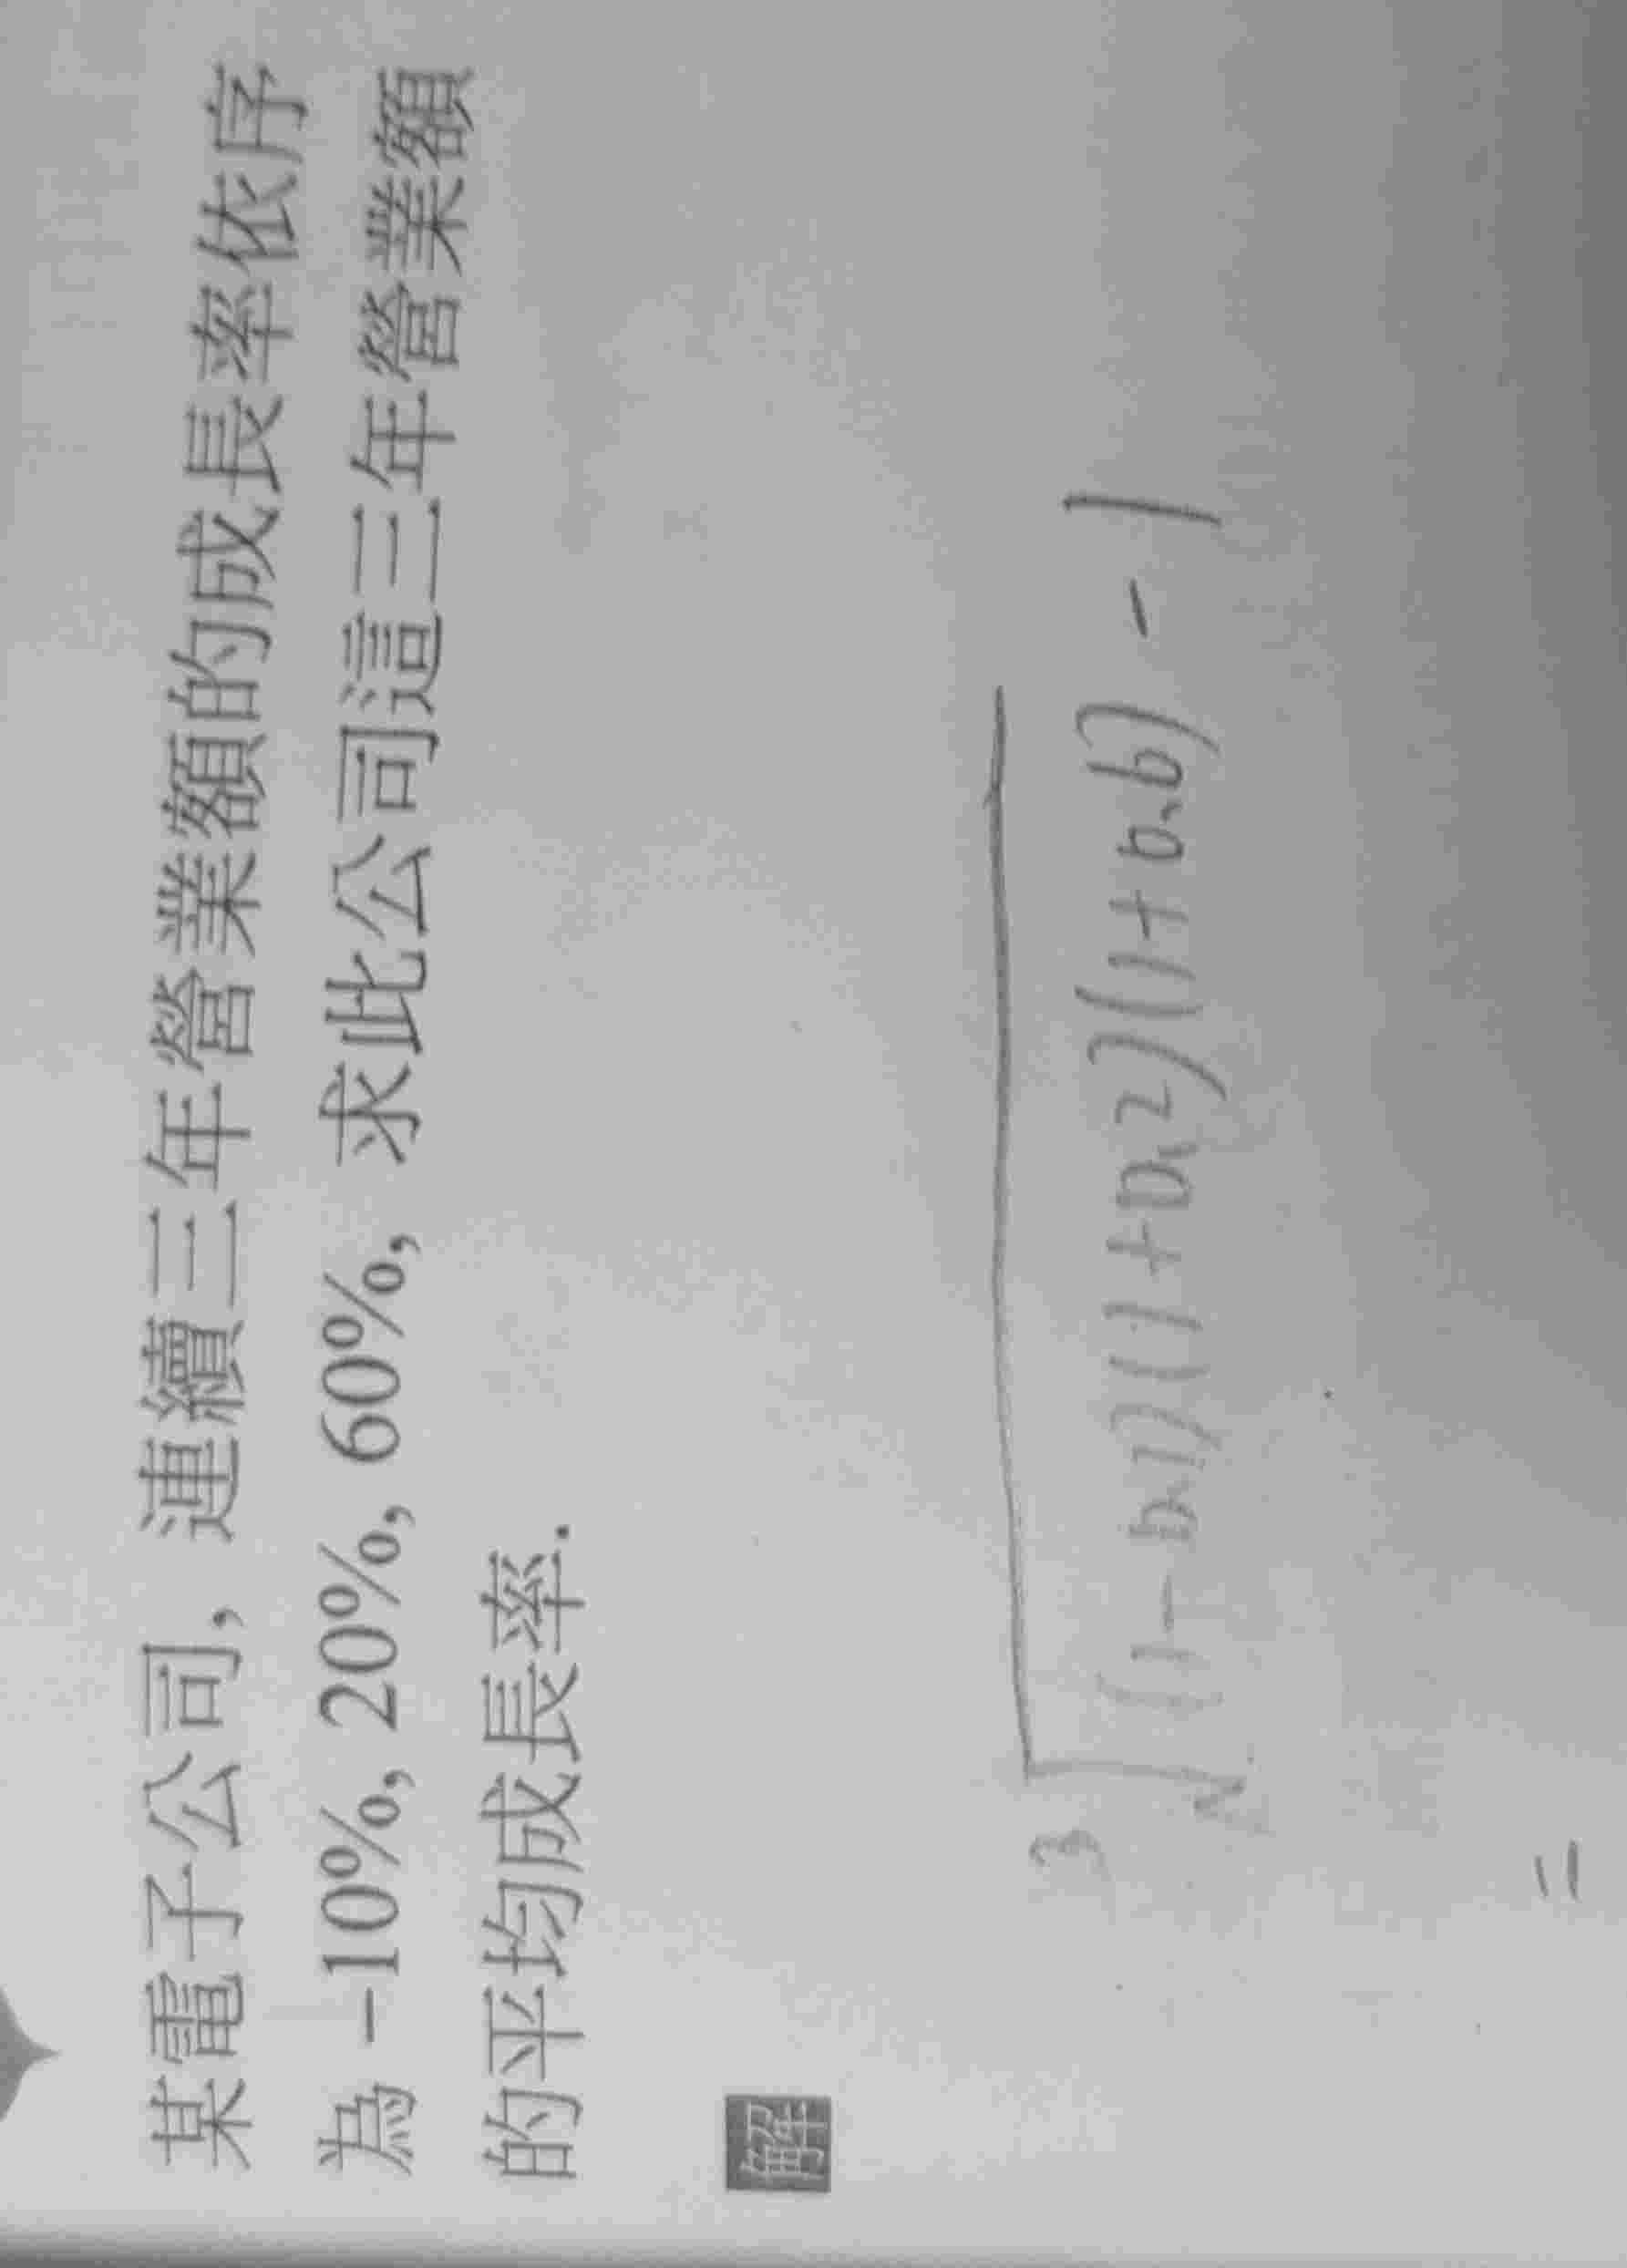 某電子公司, 連續三年營業額的成長率依序
為 -10%, 20%, 60%, 求此公司這三年營業額
的平均成長率.
解
3√(1-0.1)(1+0.2)(1+0.6) - 1
=